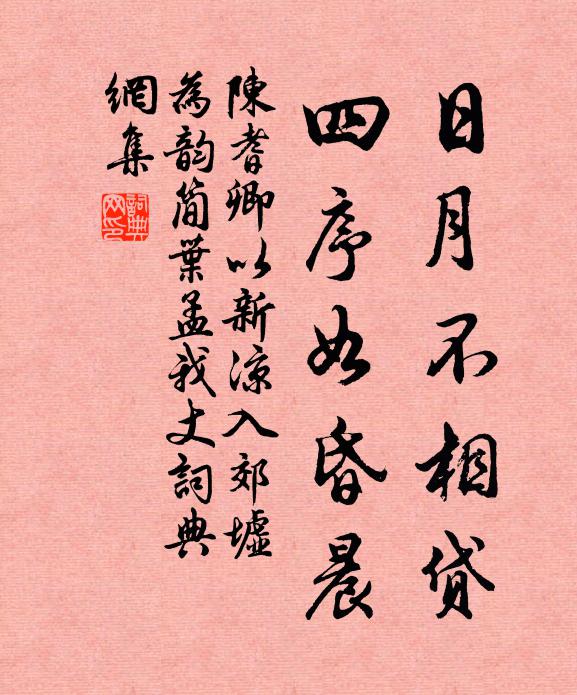 日月不相貸
四序如昏晨
陳耆卿以新涼入郊墟
為韵簡葉孟我丈詞典
網集
詞典網印